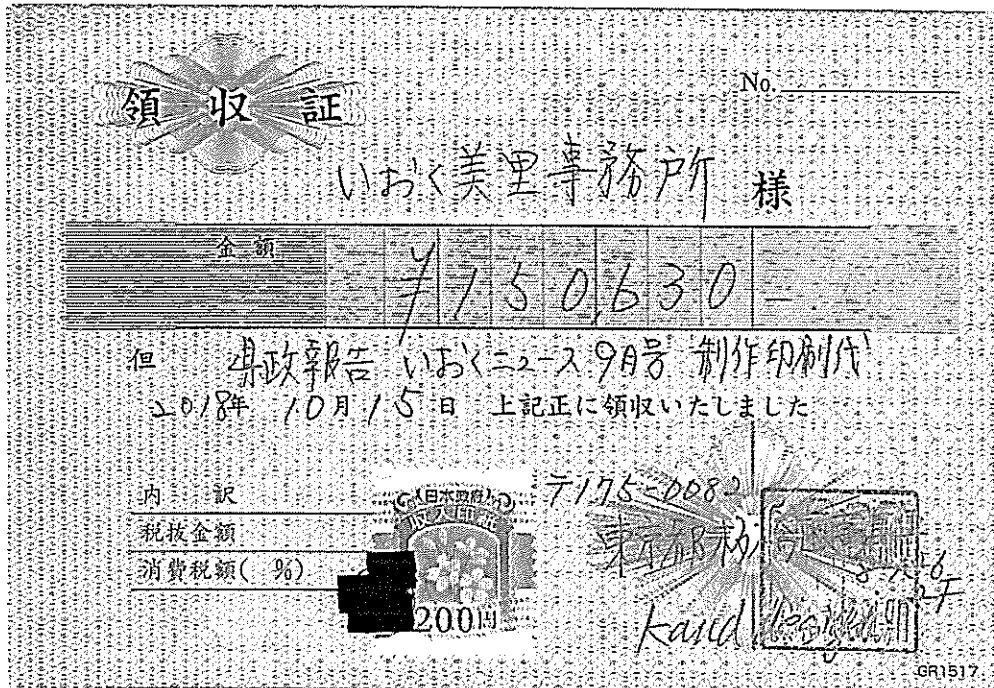 領収証
No.
いおく美里事務所 様
金額
¥150,630-
但 県政報告 いおくニュース9月号 制作印刷代
2018年 10月15日 上記正に領収いたしました
内訳
税抜金額
消費税額( %)
日本政府
収入印紙
200円
〒175-0082
東京都板
GR1517